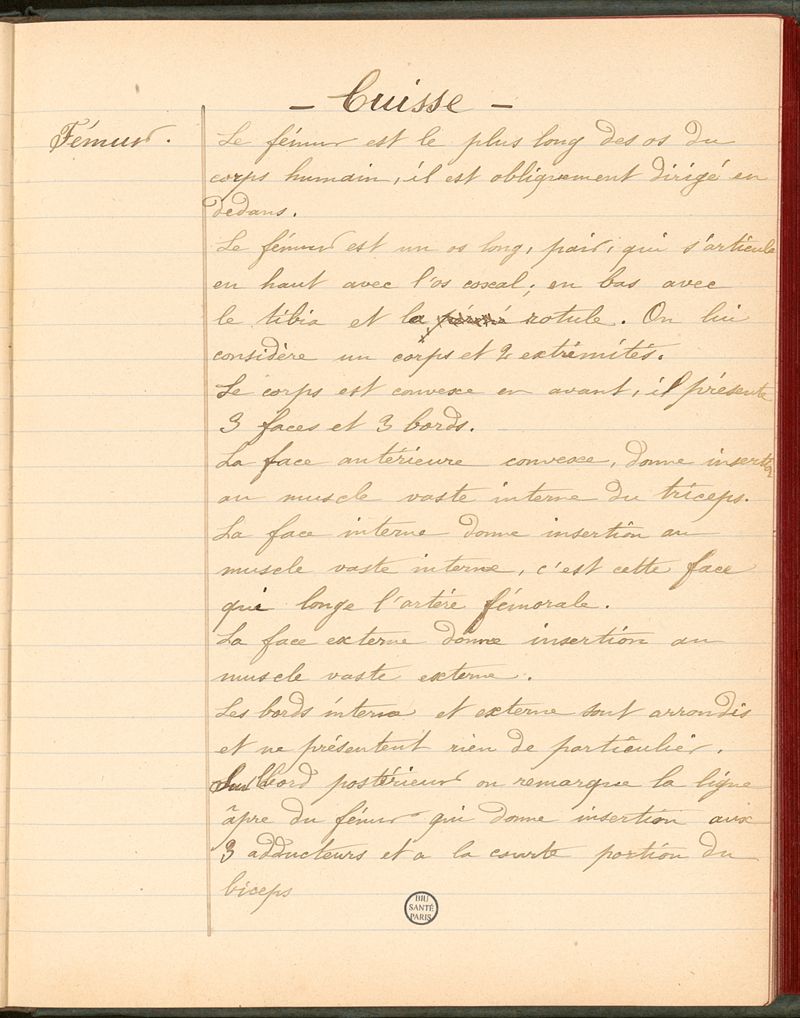 - Cuisse -
Fémur.
Le fémur est le plus long des os du
corps humain, il est obliquement dirigé en
dedans.
Le fémur est un os long, pair, qui s'articule
en haut avec l'os coxal; en bas avec
le tibia et la rotule. On lui
considère un corps et 2 extrémités.
Le corps est convexe en avant, il présente
3 faces et 3 bords.
La face antérieure convexe, donne insertion
au muscle vaste interne du triceps.
La face interne donne insertion au
muscle vaste interne, c'est cette face
qui longe l'artére fémorale.
La face externe donne insertion au
muscle vaste externe.
Les bords interne et externe sont arrondis
et ne présentent rien de particulier.
Au bord postérieur on remarque la ligne
âpre du fémur qui donne insertion aux
3 adducteurs et a la courte portion du
biceps
BIU
SANTÉ
PARIS